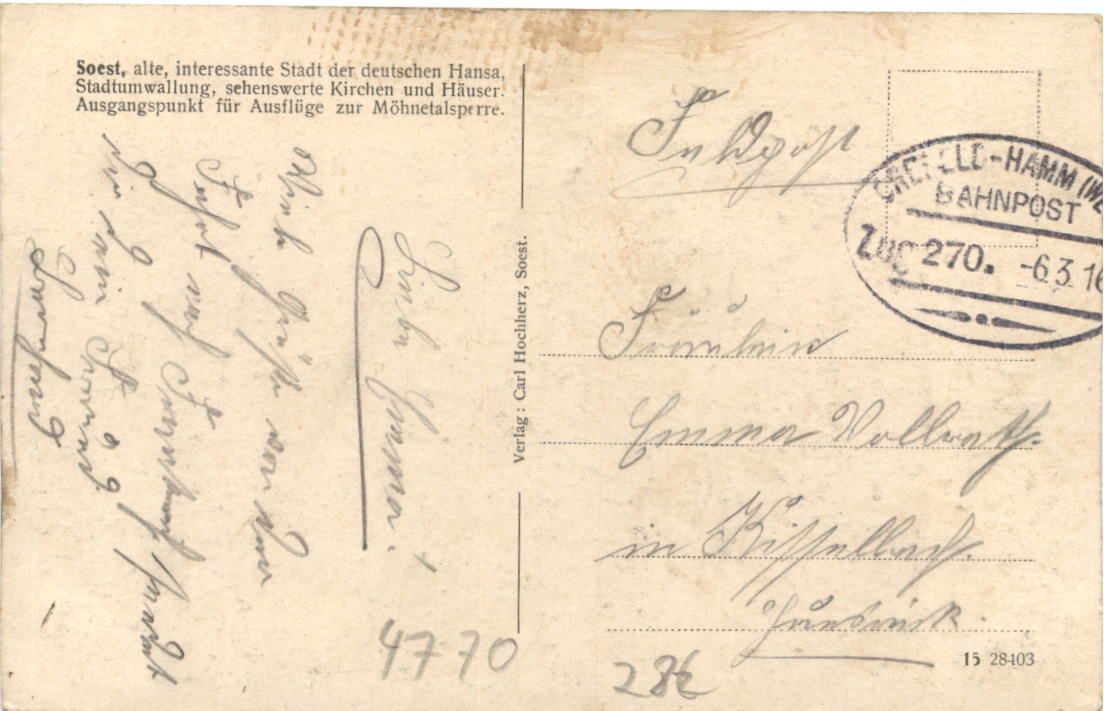 Soest, alte, interessante Stadt der deutschen Hansa,
Stadtumwallung, sehenswerte Kirchen und Häuser.
Ausgangspunkt für Ausflüge zur Möhnetalsperre.
Liebe Emma.
Viele Grüße von der
Fahrt nach
sendet
Dir Dein
Verlag: Carl Hochherz, Soest.
Feldpost
CREFELD-HAMM (WE
BAHNPOST
ZUG 270. -6.3.16
Fräulein
Emma Vollrath.
in Kisselbach.
Hunsrück.
15 28403
4770
28€